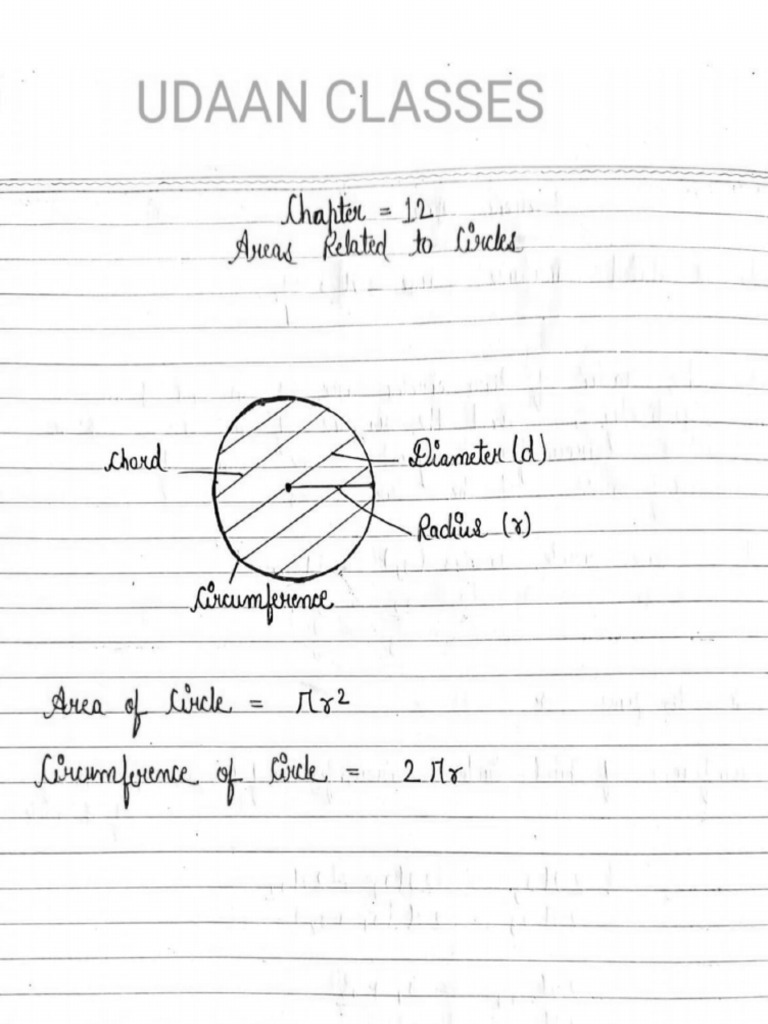 UDAAN CLASSES
Chapter = 12
Areas Related to Circles
Chord
Diameter (d)
Radius (r)
Circumference
Area of Circle = πr2
Circumference of Circle = 2πr